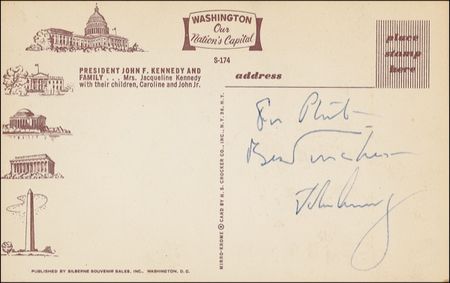 WASHINGTON
Our
Nation's Capital
S-174
PRESIDENT JOHN F. KENNEDY AND
FAMILY . . . Mrs. Jacqueline Kennedy
with their children, Caroline and John Jr.
address
place
stamp
here
For
Best wishes
MIRRO-KROME ® CARD BY H. S. CROCKER CO., INC., N.Y. 36, N.Y.
PUBLISHED BY SILBERNE SOUVENIR SALES, INC., WASHINGTON, D.C.